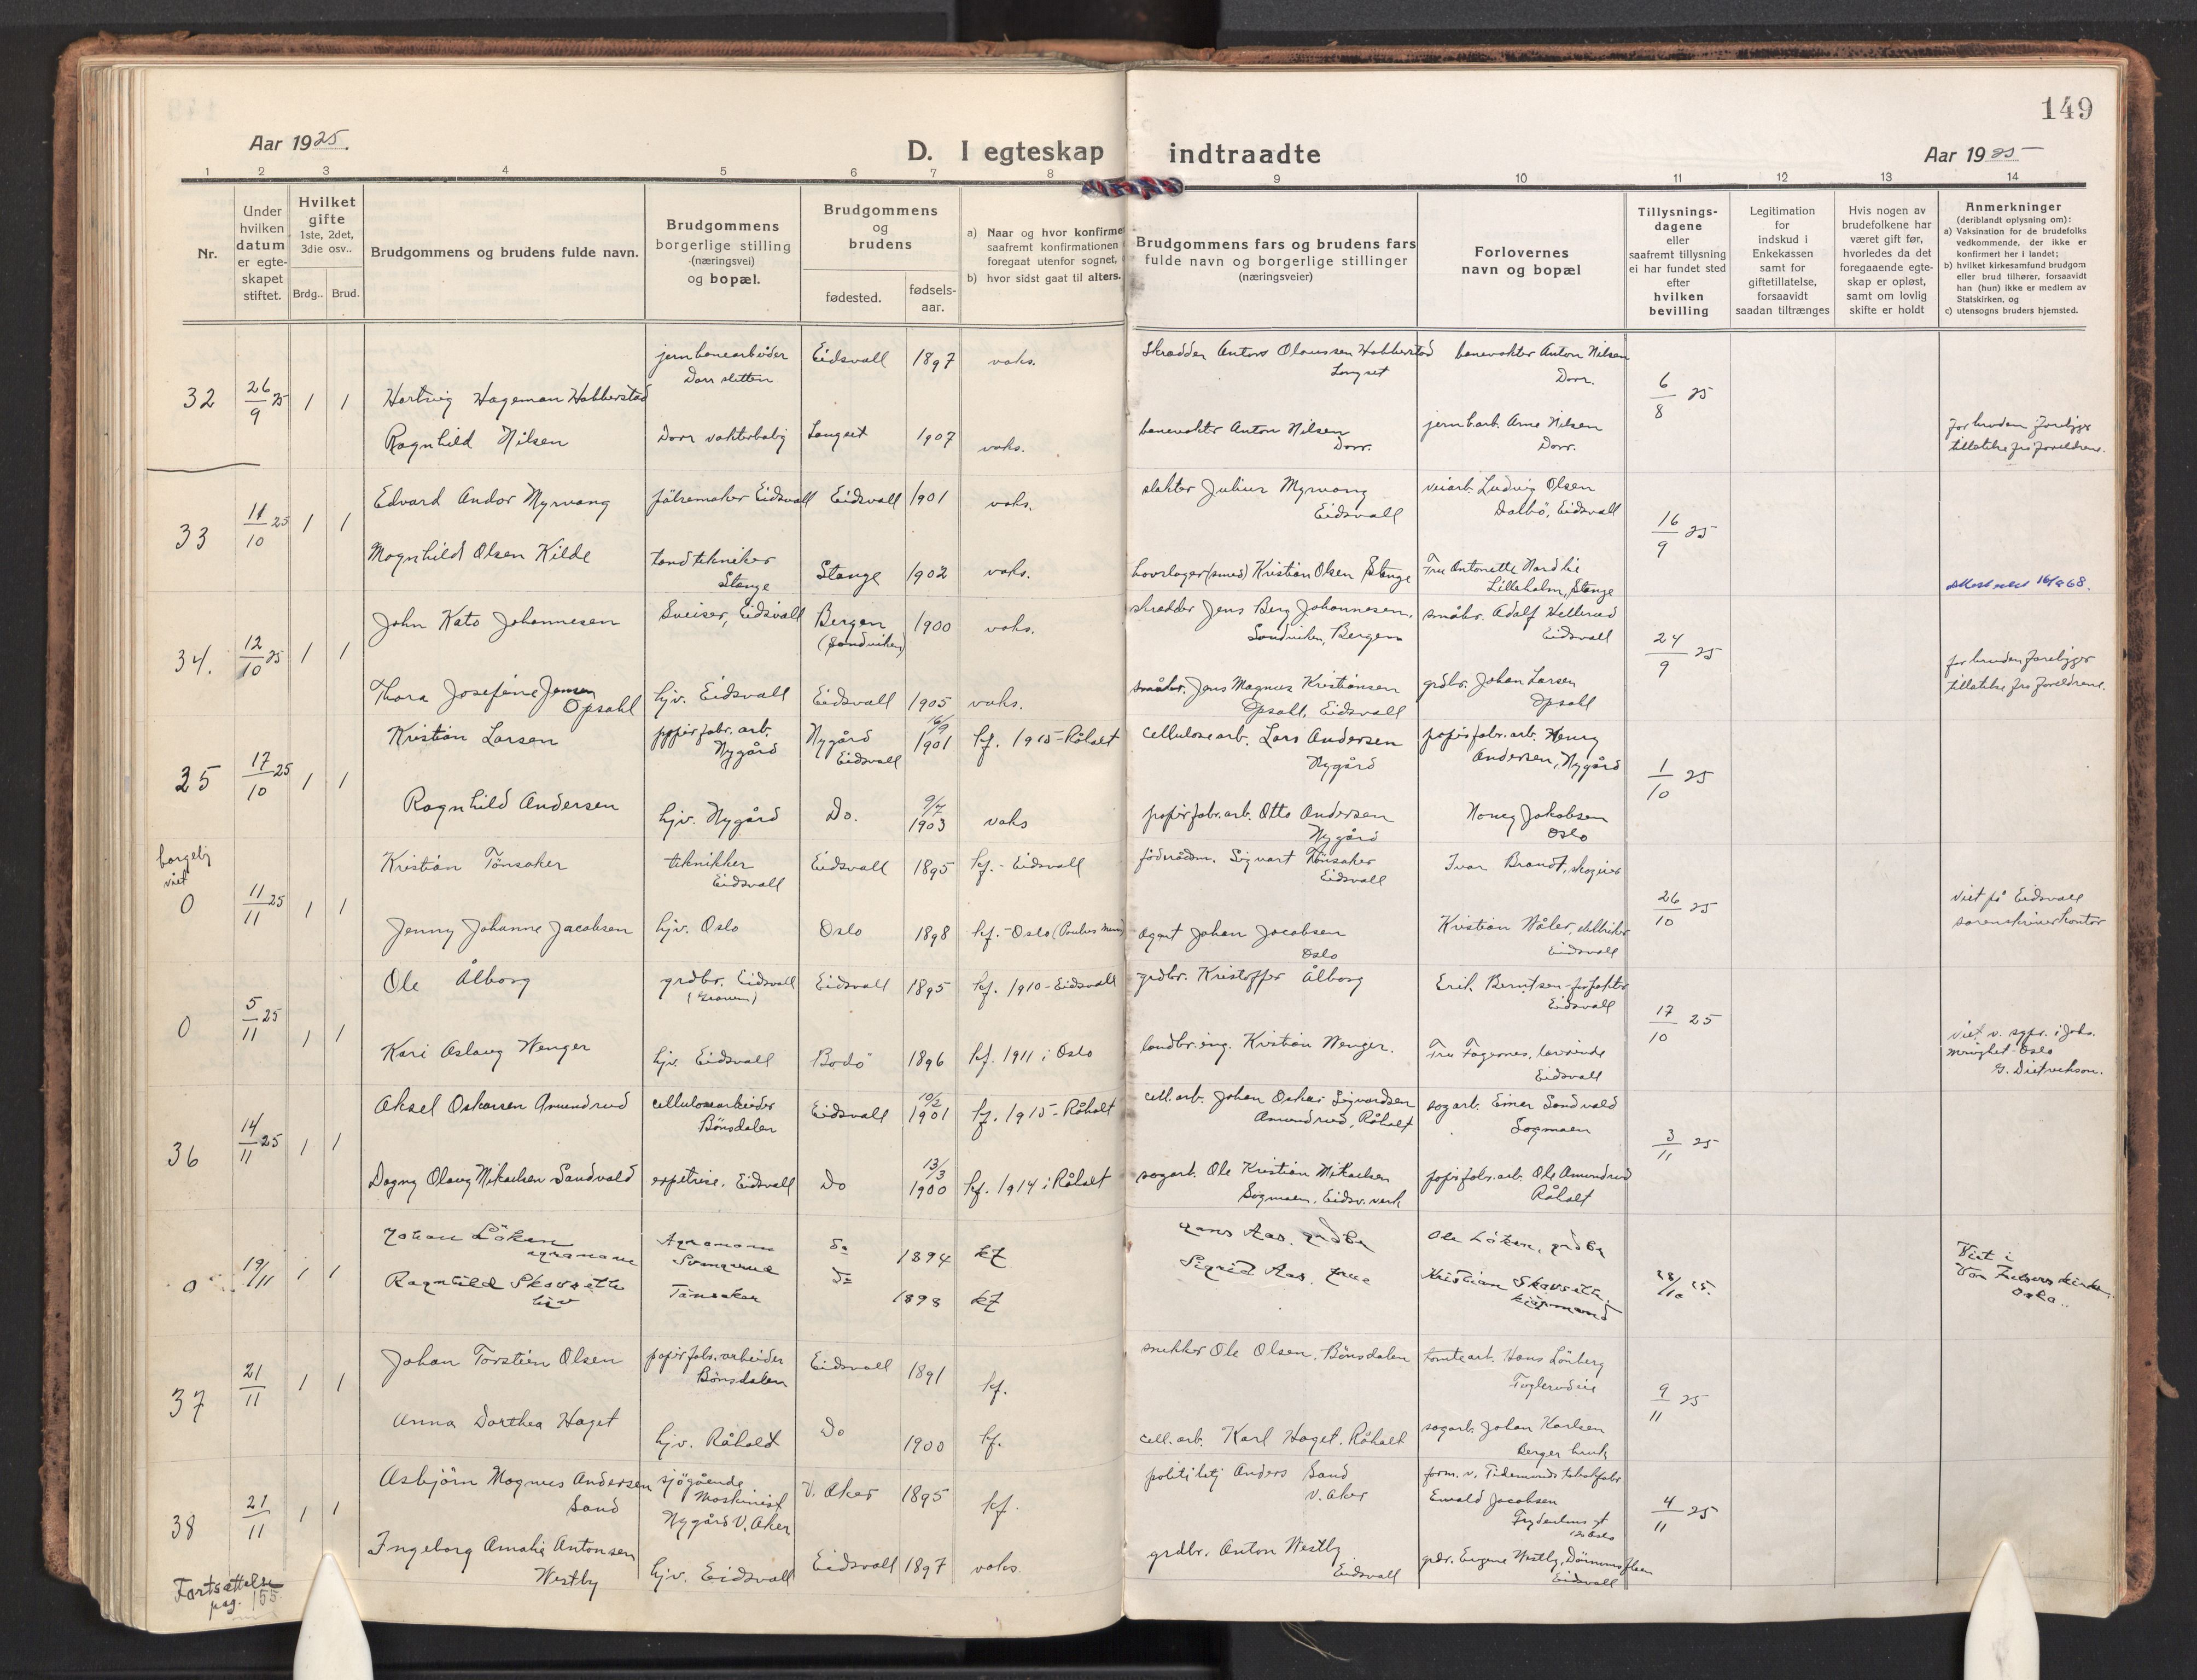 149
Aar 1925.
D. I egteskap indtraadte
Aar 1925
1 2 3 4 5 6 7 8 9 10 11 12 13 14
Nr.
Under hvilken datum er egteskapet stiftet.
Hvilket gifte 1ste, 2det, 3die osv..
Brdg.. Brud.
Brudgommens og brudens fulde navn.
Brudgommens borgerlige stilling (næringsvei) og bopæl.
Brudgommens og brudens
fødested.
fødsels-aar.
a) Naar og hvor konfirme
saafremt konfirmationen
foregaat utenfor sognet,
b) hvor sidst gaat til alters.
Brudgommens fars og brudens fars
fulde navn og borgerlige stillinger
(næringsveier)
Forlovernes
navn og bopæl
Tillysnings-
dagene
eller
saafremt tillysning
ei har fundet sted
efter
hvilken
bevilling
Legitimation
for
indskud i
Enkekassen
samt for
giftetillatelse,
forsaavidt
saadan tiltrænges
Hvis nogen av
brudefolkene har
været gift før,
hvorledes da det
foregaaende egte-
skap er opløst,
samt om lovlig
skifte er holdt
Anmerkninger
(deriblandt oplysning om):
a) Vaksination for de brudefolks
vedkommende, der ikke er
konfirmert her i landet;
b) hvilket kirkesamfund brudgom
eller brud tilhører, forsaavidt
han (hun) ikke er medlem av
Statskirken, og
c) utensogns bruders hjemsted.
32 26/9 25 1 1 Hartvig Hageman Habberstad
jernbanearbeider Dorr sletten Eidsvall 1897 vaks.
Skrædder Anton Olaussen Habberstad Langset
banevokter Anton Nilsen Dorr.
6/8 25
Ragnhild Nilsen Dorr vokterbolig Langset 1907 vaks.
banevokter Anton Nilsen Dorr.
jernb.arb. Arne Nilsen Dorr.
for bruden foreligger
tillatelse fra foreldrene.
33 11/10 25 1 1 Edvard Andor Myrvang
Eidsvall Eidsvall 1901 vaks.
slakter Julius Myrvang Eidsvall
veiarb. Ludvig Olsen Dalbö, Eidsvall
16/9 25
Magnhild Olsen Kilde tandtekniker Stange Stange 1902 vaks.
hovslager (smed) Kristian Olsen Stange
Fru Antonette Nordlie Lilleholm, Stange
34. 12/10 25 1 1 John Kato Johannesen
Sveiser, Eidsvall Bergen (Sandviken) 1900 vaks.
skrædder Jens Berg Johannesen, Sandviken, Bergen
småbr. Adolf Hellerud Eidsvall
24/9 25
Thora Josefine Jensen Opsahl hjv. Eidsvall Eidsvall 1905 vaks.
småbr. Jens Magnus Kristiansen Opsahl, Eidsvall
grdbr. Johan Larsen Opsahl
for bruden foreligger
tillatelse fra foreldrene.
35 17/10 25 1 1 Kristian Larsen
papirfabr. arb. Nygård Nygård Eidsvall 16/9 1901 kf. 1915 - Råholt
cellulosearb. Lars Andersen Nygård
papirfabr. arb. Henry Andersen, Nygård
1/10 25
Ragnhild Andersen hjv. Nygård Do. 9/7 1903 vaks
papirfabr.arb. Otto Andersen Nygård
Jakobsen Oslo
borgelig viet
0 11/11 25 1 1 Kristian Tönsaker
teknikker Eidsvall Eidsvall 1895 kf. - Eidsvall
föderådsm. Sigvart Tönsaker Eidsvall
Ivar Brandt,
26/10 25
Jenny Johanne Jacobsen hjv. Oslo Oslo 1898 kf. - Oslo (Paulus men
agent Johan Jacobsen Oslo
Kristian Eidsvall
viet på Eidsvall
sorenskriverkontor
0 5/11 25 1 1 Ole Ålborg
grdbr. Eidsvall Eidsvall 1895 kf. 1910 - Eidsvall
grdbr. Kristoffer Ålborg
Erik Berntsen - forfatter Eidsvall
17/10 25
Kari Aslaug Wenger hjv. Eidsvall Bodö 1896 kf. 1911 i Oslo
landbr.ing. Kristian Wenger.
Fru Fagernes, Eidsvall
viet v. sgpr. i Johs.
menighet - Oslo
G. Dietrichson.
36 14/11 25 1 1 Aksel Oskarsen Amundrud
cellulosearbeider Bönsdalen Eidsvall 10/2 1901 kf. 1915 - Råholt
cell. arb. Johan Oskar Sigvardsen Amundrud, Råholt
sagarb. Einar Sandvold Sagmoen
3/11 25
Dagny Olaug Mikaelsen Sandvold expetrise. Eidsvall Do 13/3 1900 kf. 1914 i Råholt
sagarb. Ole Kristian Mikaelsen Sagmoen, Eidsv. verk
papirfabr. arb. Ole Amundrud Råholt
0 19/11 1 1 Johan Löken agronom
Agronom Do 1894 kf
Hans Aas. grdbr
Ole Löken, grdbr
28/10 25.
Ragnhild Skavsette hjv Tönsaker Do 1898 kf
Sigrid Aas. frue
Kristian Skavsett, kjøpmand
Viet i
Vor Frelsers kirke
Oslo..
37 21/11 1 1 Johan Torstein Olsen
papirfabr. arbeider Bönsdalen Eidsvall 1891 kf.
snekker Ole Olsen, Bönsdalen
tomtearb. Hans Lönberg
9/11 25
Anna Dorthea Haget hjv. Råholt Do 1900 kf.
cell. arb. Karl Haget, Råholt
sagarb. Johan Karlsen Berger bruk
38 21/11 1 1 Asbjörn Magnus Andersen Sand
sjögående Maskinist Nygård V. Aker V. Aker 1895 kf.
politibtj Anders Sand V. Aker
form. v. Tidemands tobakfabr. Ewald Jacobsen Oslo
4/11 25
Ingeborg Amalie Antonsen Westby hjv. Eidsvall Eidsvall 1897 vaks.
grdbr. Anton Westby Eidsvall
grdbr. Eugene Westby, Eidsvall
Fortsættelse
pag. 155